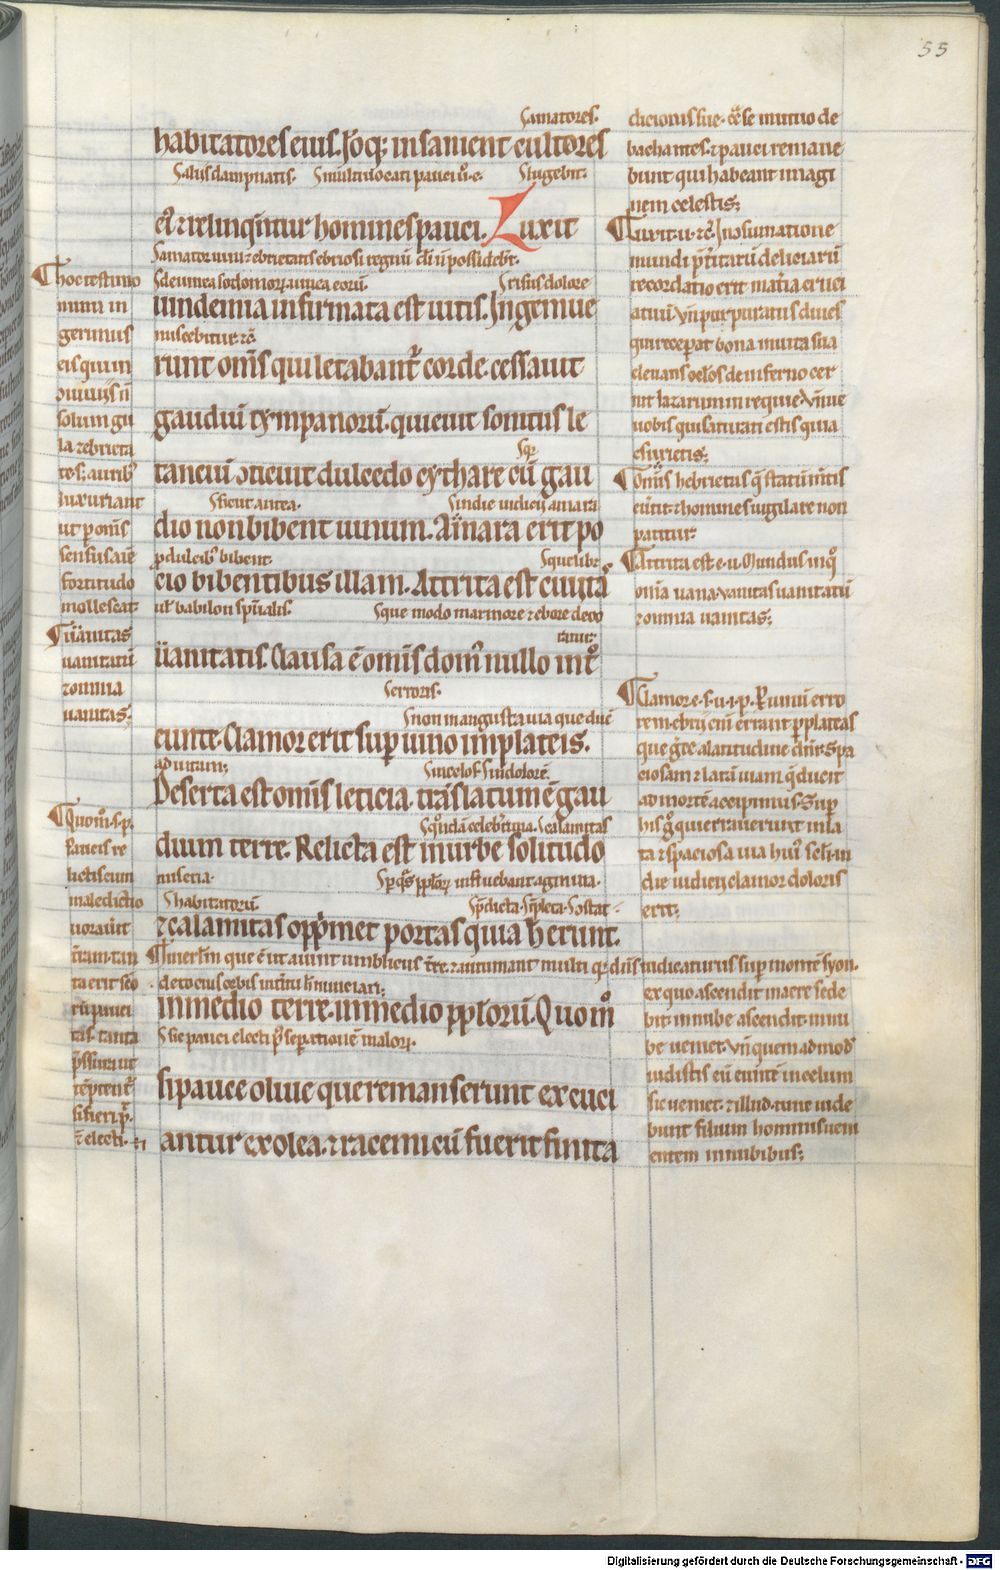 55
S. amatores.
habitatores eius. Ioq; insanient cultores
S. alus dampnatis. S. multi uocati pauci u. e. S. lugebit.
ei᷒ ⁊ relinqn̄tur homines pauci. Luxit
S. amatorū uini ⁊ ebrietatis ebriosi regnū di n̄ possidebt.
S. de uinea sodomorꝝ uinea eorū. S. risus dolore
uindemia infirmata est uitis. Ingemue
miscebitur ⁊c̄
runt om̄s qui letabant᷑ corde. cessauit
gaudiū tympanorū. quieuit sonitus le
S. qr
tanciū ↄticuit dulcedo cythare cū gau
S. sicut antea. S. in die iudicij amara
dio non bibent uinum. Amara erit po
p̱ dulcib᷒ bibent. S. que libr
cio bibentibus illam. Attrita est ciuitā
ul᷑ babilon sp̄ualis. S. que modo marmore ⁊ ebore deco
rantur;
uanitatis. Clausa ē om̄is dom᷒ nullo int᷑o
S. erroris.
S. non in angusta uia que duc̄
eunte. Clamor erit sup̱ uino in plateis.
ad uitam;
S. in celos. S. in dolorē.
Deserta est om̄is leticia. translatum ē gau
S. q̊ndā celeb̄rima. S. calamitas
dium terre. Relicta est in urbe solitudo
miseria. S. p̱ q̄s pp̱lorꝝ influebant agmina.
S. habitatorū S. p̄dicta. S. īpleta. S. ostat.
⁊ calamitas opp̄met portas quia h̄ erunt.
In ierl̄m que ē ut aiunt umblicus t̄re. ⁊ autumant multi qr̄ dn̄s iudicaturus sup̱ montē syon.
de toto eius orbis initiū h̄ nunciari;
in medio terre. in medio pp̱lorū. Quom̊
S. sic pauci electi p᷒ sep̱ationē malorꝝ.
si pauce oliue que remanserunt excuci
antur ex olea. ⁊ racemi cū fuerit finita
hoc testimo
nium in
gerimus
eis qui in
solum gu
la ⁊ ebrieta
te. s; aurib᷒
luxuriant
ut p̱ om̄s
sensus aīe
fortitudo
mollescat
Uanitas
uanitatū
⁊ omnia
uanitas;
Quom̊. s. p.
Paucis re
lictis cum
maledictio
uorauit
t̄ram. tan
ta erit seō
rū pauci
tas. tanta
p̄ssura ut
tēptent᷑
si fieri p᷑
⁊ electi.
dicionis sue. q̄ se mutuo de
bachantes. ⁊ pauci remane
bunt qui habeant imagi
nem celestis;
Luxit. u. ⁊c̄. In ↄsumatione
mundi p̄t᷑itarū deliciarū
recordatio erit mat̄ia cruci
atuū. Vn̄ purpuratus diues
qui recep̱at bona in uita sua
eleuans oc̄los de inferno cer
nit lazarum in requie. Vn̄. ue
uobis qui saturati estis quia
esurietis;
Om̄is hebrietas q̄ statū m̄tis
eu᷑tit ⁊ homines uigilare non
patitur.
Attrita est. c. u. Mundus in q̊
om̄ia uana. uanitas uanitatū
⁊ omnia uanitas;
Clamor e. s. u. i. p. P̱ uinū erro
rem. ebrij em̄ errant p̱ plateas
que g̊ce a latitudine dn̄r. Spa
ciosam ⁊ latā uiam q̄ ducit
ad mortē accipimus. Sup̱
his g̊ qui errauerunt in la
ta ⁊ spaciosa uia hui᷒ sc̄li. in
die iudicij clamor doloris
erit;
ex quo ascendit in aere sede
bit. in nube ascendit. in nu
be ueniet. Vn̄ quemadmod̄
uidistis eū euntē in celum
sic ueniet. ⁊ illud. tunc uide
bunt filium hominis ueni
entem in nubibus;
Digitalisierung gefördert durch die Deutsche Forschungsgemeinschaft - DFG